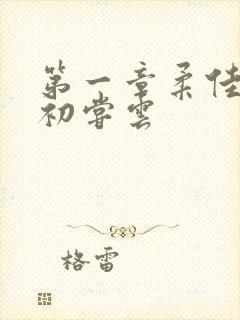 第一章柔佳
初尝云
格雷